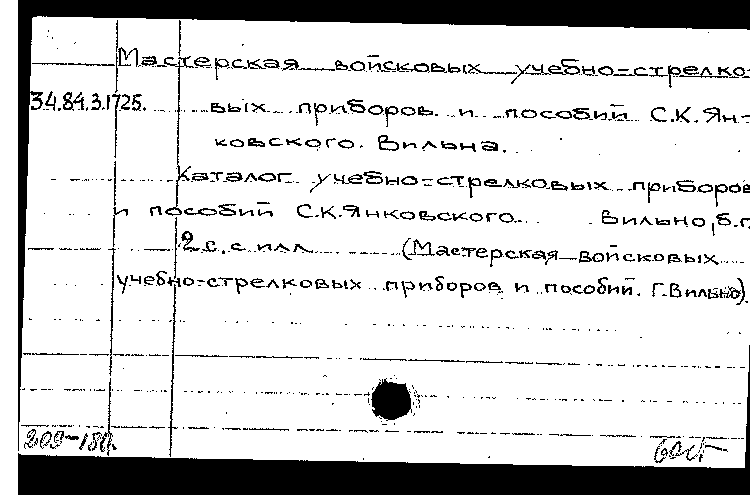 Мастерская войсковых учебно-стрелко-
34.84.3.1725. вых приборов и пособий С.К.Ян-
ковского. Вильна.
Каталог учебно-стрелковых приборов
и пособий С.К.Янковского. Вильно, б.г.
2 с. с илл. (Мастерская войсковых
учебно-стрелковых приборов и пособий. Г.Вильно).